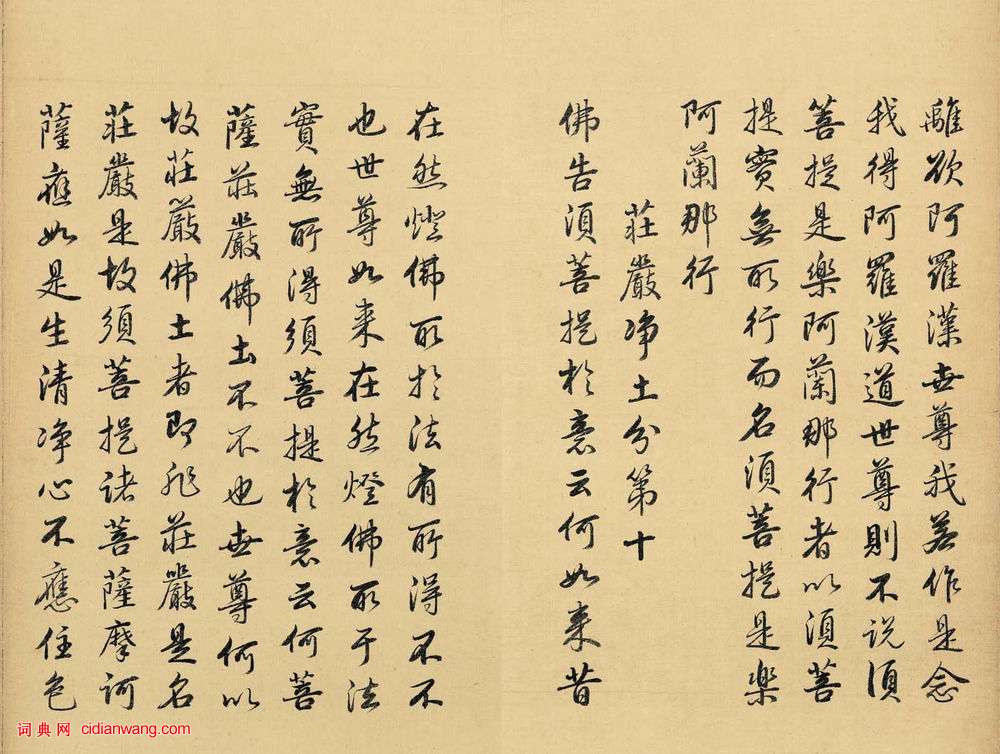 離欲阿羅漢世尊我若作是念
我得阿羅漢道世尊則不说須
菩提是樂阿蘭那行者以須菩
提實無所行而名須菩提是樂
阿蘭那行
莊嚴净土分第十
佛告須菩提於意云何如来昔
在然燈佛所於法有所得不不
也世尊如来在然燈佛所于法
實無所得須菩提於意云何菩
薩莊嚴佛土不不也世尊何以
故莊嚴佛土者即非莊嚴是名
莊嚴是故須菩提诸菩薩摩訶
薩應如是生清净心不應住色
词典网 cidianwang.com